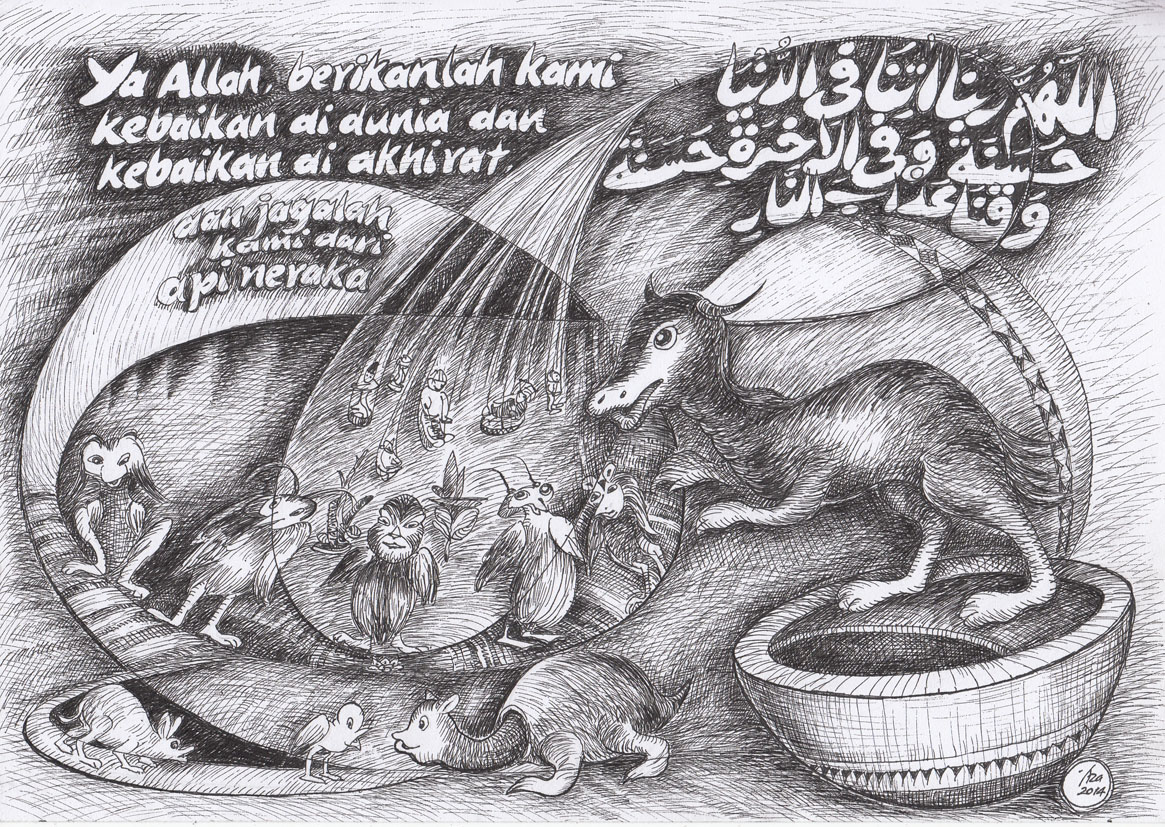 Ya Allah, berikanlah kami
kebaikan di dunia dan
kebaikan di akhirat,
dan jagalah
kami dari
api neraka
اللَّهُمَّ رَبَّنَا أٰتِنَا فِى الدُّنْيَا
حَسَنَةً وَفِى الْاٰخِرَةِ حَسَنَةً
وَقِنَا عَذَابَ النَّارِ
'Aza
2014